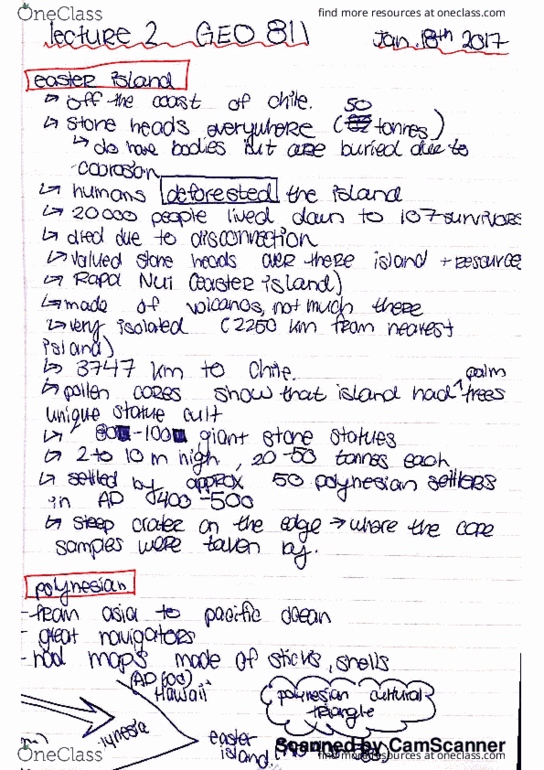 OneClass
find more resources at oneclass.com
lecture 2 GEO 811 Jan. 18th 2017
easter island
↳ off the coast of chile.
50
↳ stone heads everywhere ( tonnes)
↳ do have bodies but are buried due to
corrosion
↳ humans deforested the island
↳ 20000 people lived down to 107 survivors
↳ died due to disconnection
↳ valued stone heads over there island + resource
↳ Rapa Nui (easter island)
↳ made of volcanos, not much there
↳ very isolated (2250 km from nearest
island)
↳ 3747 km to Chile.
palm
↳ pollen cores show that island had ^ trees
unique statue cult
↳ giant stone statues
↳ 2 to 10 m high, 20-50 tonnes each
↳ settled by approx 50 polynesian settlers
in AD 400-500
↳ steep crater on the edge → where the core
samples were taken by.
polynesian
- from asia to pacific ocean
- great navigators
- had maps made of sticks, shells
Hawaii
polynesian cultural
triangle
easter
island
Scanned by CamScanner
OneClass
find more resources at oneclass.com